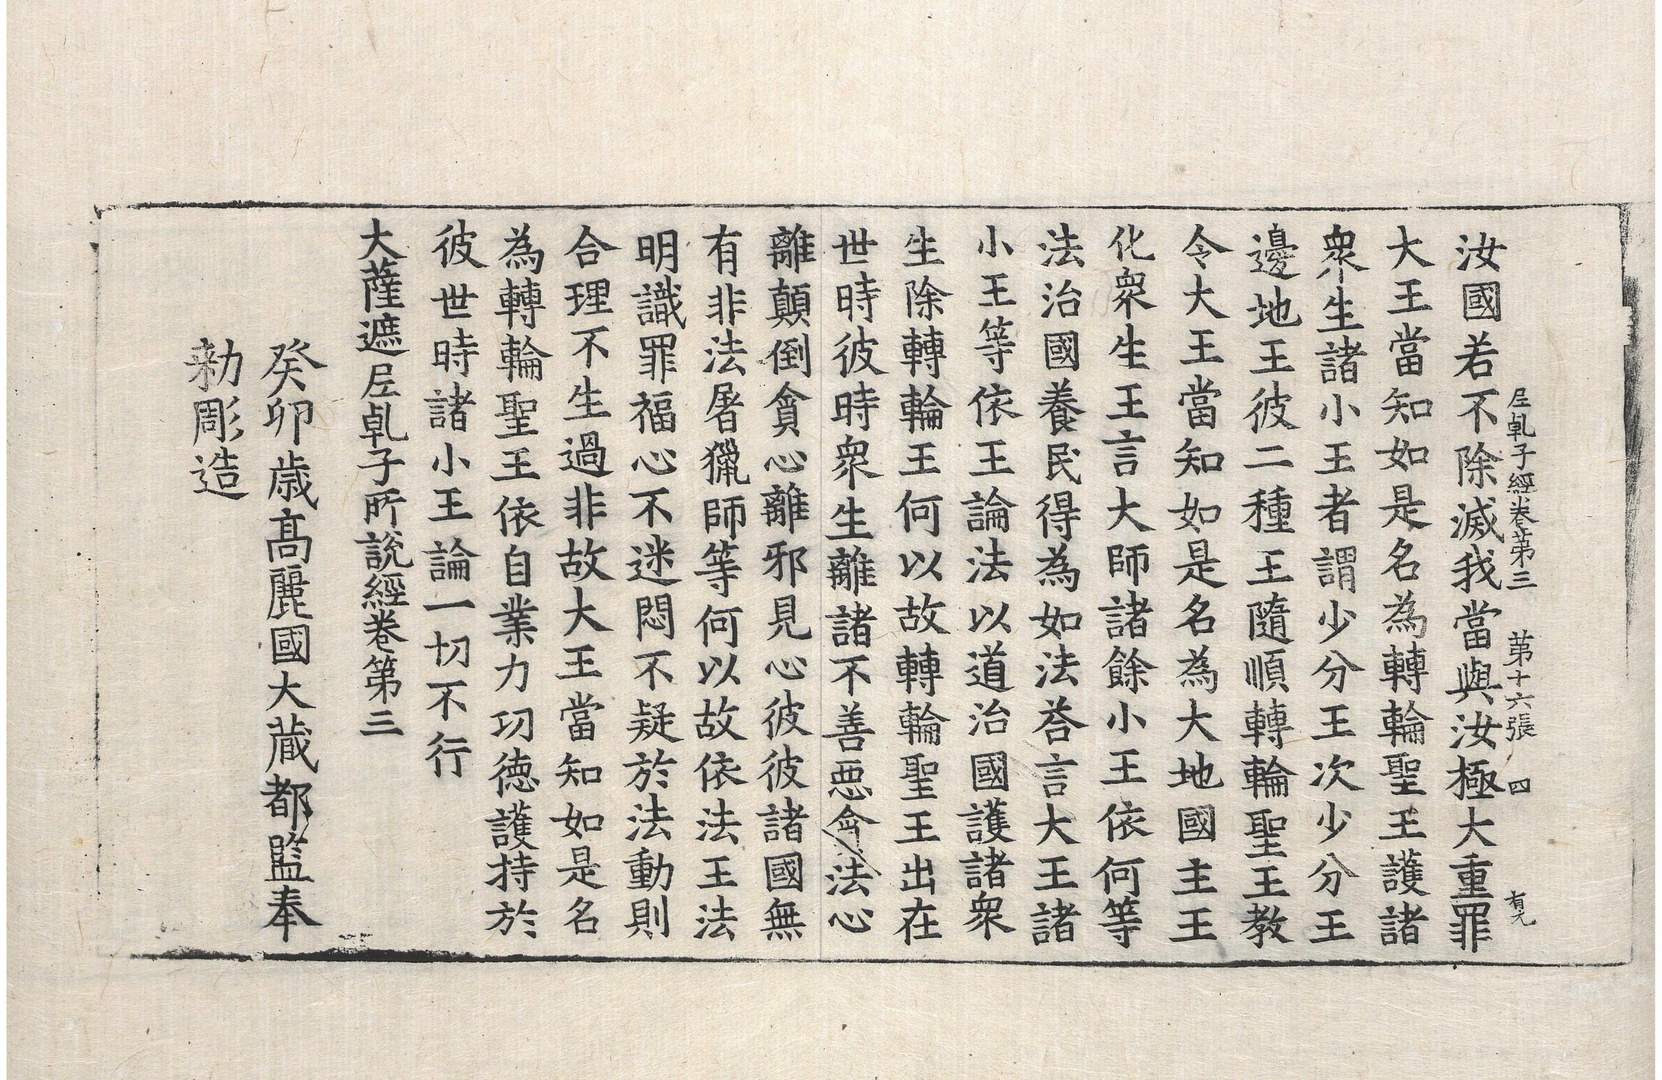 𡰱乹子經卷苐三　苐十六張　四　有元
汝國若不除滅我當與汝極大重罪
大王當知如是名為轉輪聖王護諸
衆生諸小王者謂少分王次少分王
邊地王彼二種王隨順轉輪聖王教
令大王當知如是名為大地國主王
化衆生王言大師諸餘小王依何等
法治國養民得為如法荅言大王諸
小王等依王論法以道治國護諸衆
生除轉輪王何以故轉輪聖王出在
世時彼時衆生離諸不善惡貪法心
離顛倒貪心離邪見心彼彼諸國無
有非法屠獵師等何以故依法王法
明識罪福心不迷悶不疑於法動則
合理不生過非故大王當知如是名
為轉輪聖王依自業力功德護持於
彼世時諸小王論一切不行
大薩遮𡰱乹子所說經卷第三
癸卯歲高麗國大蔵都監奉
勑彫造